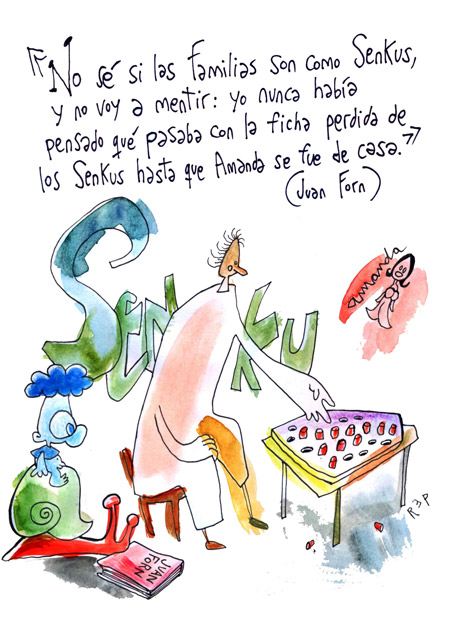 «No sé si las familias son como Senkus,
y no voy a mentir: yo nunca había
pensado qué pasaba con la ficha perdida de
los Senkus hasta que Amanda se fue de casa.»
(Juan Forn)
amanda
SENKU
REP
JUAN
FORN